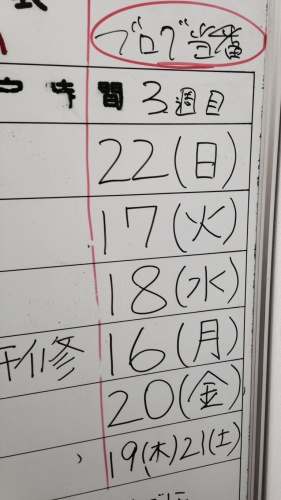 ブログ当番
時間 3週目
22(日)
17(火)
18(水)
研修 16(月)
20(金)
19(木)21(土)